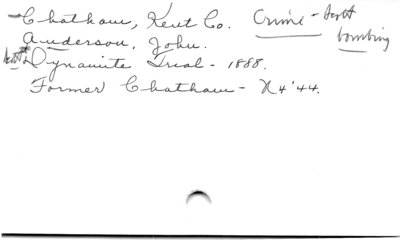 Chatham, Kent Co. Crime - Scott bombing
Anderson, John.
Scott Dynamite Trial - 1888.
Former Chatham - N4'44.